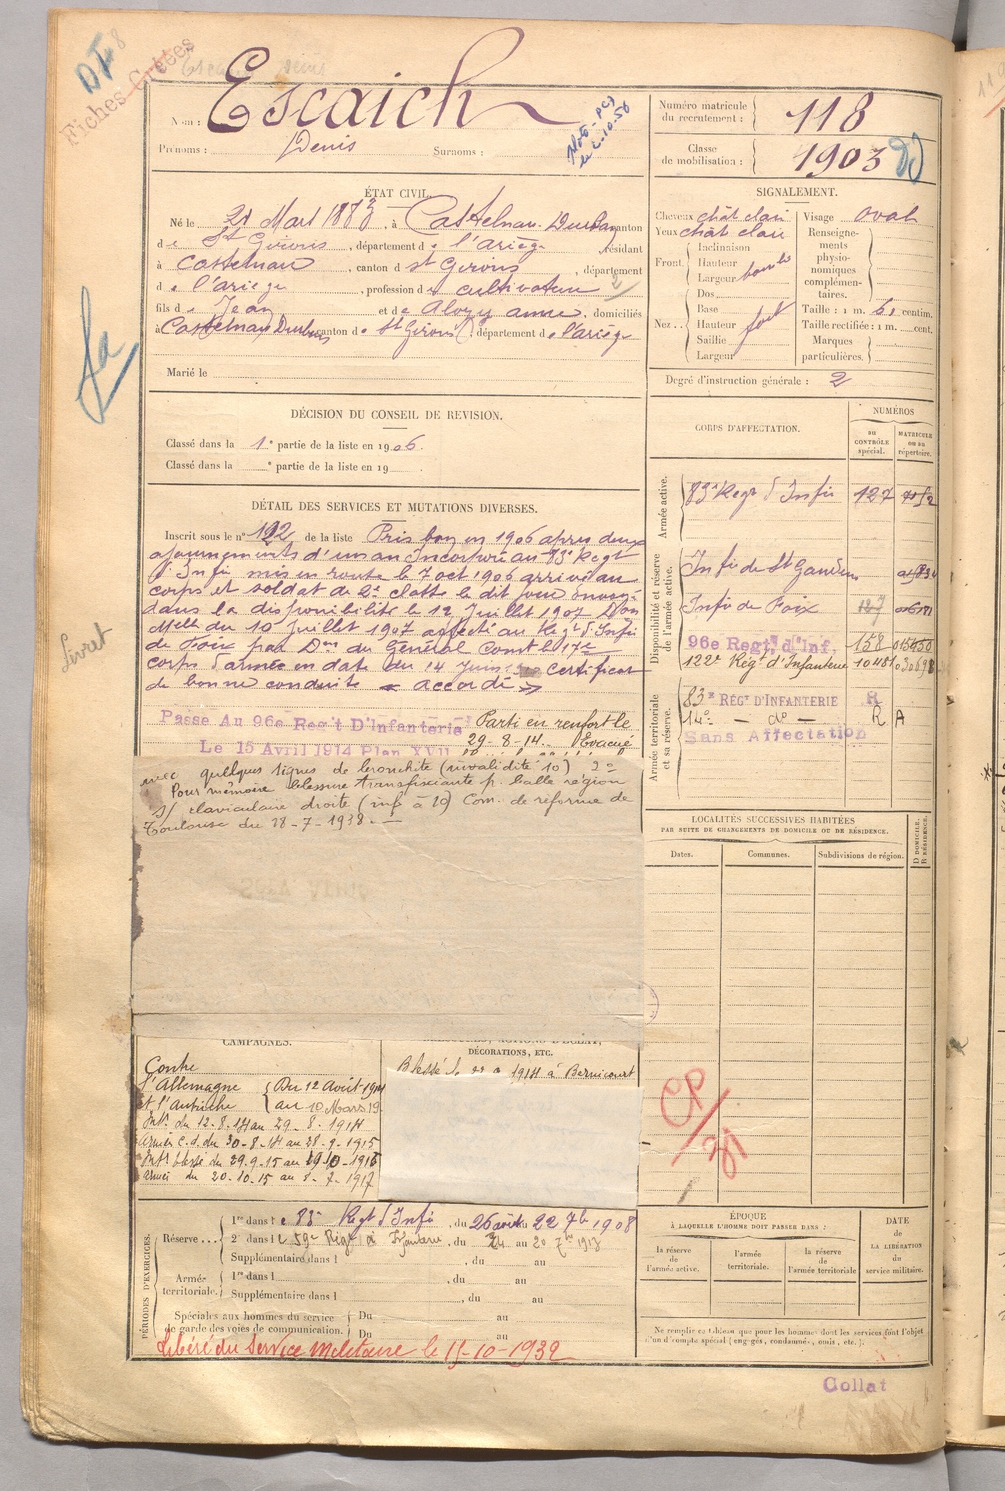 DF 8
Fiches Créées
Nom : Escaich
Prénoms : Denis Surnoms :
Numéro matricule du recrutement : 118
Classe de mobilisation : 1903
ÉTAT CIVIL.
Né le 21 Mars 1883, à Castelnau-Durban, canton
de St Girons, département de l'ariège, résidant
à Castelnau, canton d St Girons, département
de l'ariège, profession de cultivateur
fils de Jean et de Alozy anne, domiciliés
à Castelnau Durban canton de St Girons, département de l'ariège
Marié le
SIGNALEMENT.
Cheveux chât clair
Yeux chât clair
Front
Inclinaison
Hauteur
Largeur
Nez
Dos
Base
Hauteur fort
Saillie
Largeur
Visage oval
Renseignements physionomiques complémentaires.
Taille : 1 m. 61 centim.
Taille rectifiée : 1 m. cent.
Marques particulières.
Degré d'instruction générale : 2
DÉCISION DU CONSEIL DE REVISION.
Classé dans la 1e partie de la liste en 1906.
Classé dans la e partie de la liste en 19
DÉTAIL DES SERVICES ET MUTATIONS DIVERSES.
Inscrit sous le n° 192 de la liste Pris bon en 1906 après deux
ajournements d'un an Incorporé au 83e Regt
d'Infie mis en route le 7 oct 1906 arrivé au
corps et soldat de 2e classe le dit jour envoyé
dans la disponibilité le 12 Juillet 1907 Don
Melle du 10 Juillet 1907 affecté au Régt d'Infie
de Foix par Don du Général Comt le 17e
corps d'armée en date du 14 Juin certificat
de bonne conduite « accordé »
Passe Au 96e Reg't D'Infanterie Parti en renfort le
Le 15 Avril 1914 Plan XVII 29-8-14. Evacué
avec quelques signes de bronchite (invalidité 10) 2°
Pour mémoire blessure transfixiante p. balle région
s/ claviculaire droite (inf à 10) Com. de réforme de
Toulouse du 28-7-1938.
Livret
CORPS D'AFFECTATION.
NUMÉROS
DU CONTRÔLE spécial.
MATRICULE OU DU répertoire.
Armée active.
83e Regt d'Infie 127
Disponibilité et réserve de l'armée active.
Infie de St Gaudens
Infie de Foix 127
96e Regt, d'Inf. 158 015450
122e Régt d'Infanterie
Armée territoriale et sa réserve.
83e RÉGT D'INFANTERIE R
14e — do — R A
Sans Affectation
LOCALITÉS SUCCESSIVES HABITÉES
PAR SUITE DE CHANGEMENTS DE DOMICILE OU DE RÉSIDENCE.
D DOMICILE. R RÉSIDENCE.
Dates. Communes. Subdivisions de région.
CAMPAGNES.
Contre
l'Allemagne { Du 12 Août 1914
et l'Autriche au 10 Mars 19
Intr. du 12-8-14 au 29-8-1914
armées c.d. du 30-8-14 au 28-9-1915
Intr blessé du 29.9.15 au 19-10-1915
armées du 20.10.15 au
DÉCORATIONS, ETC.
Blessé le 22 1914 à Bernicourt
CP
PÉRIODES D'EXERCICES.
Réserve...
1re dans le 83e Regt d'Infie, du 26 août au 22 7b 1908
2e dans le 59e Régt d'Infanterie, du 24 au 20 7b
Supplémentaire dans l , du au
Armée territoriale.
1re dans l , du au
Supplémentaire dans l , du au
Spéciales aux hommes du service de garde des voies de communication.
Du au
Du au
Libéré du Service Militaire le 15-10-1932
ÉPOQUE
À LAQUELLE L'HOMME DOIT PASSER DANS :
la réserve de l'armée active.
l'armée territoriale.
la réserve de l'armée territoriale
DATE DE LA LIBÉRATION du service militaire.
Collat